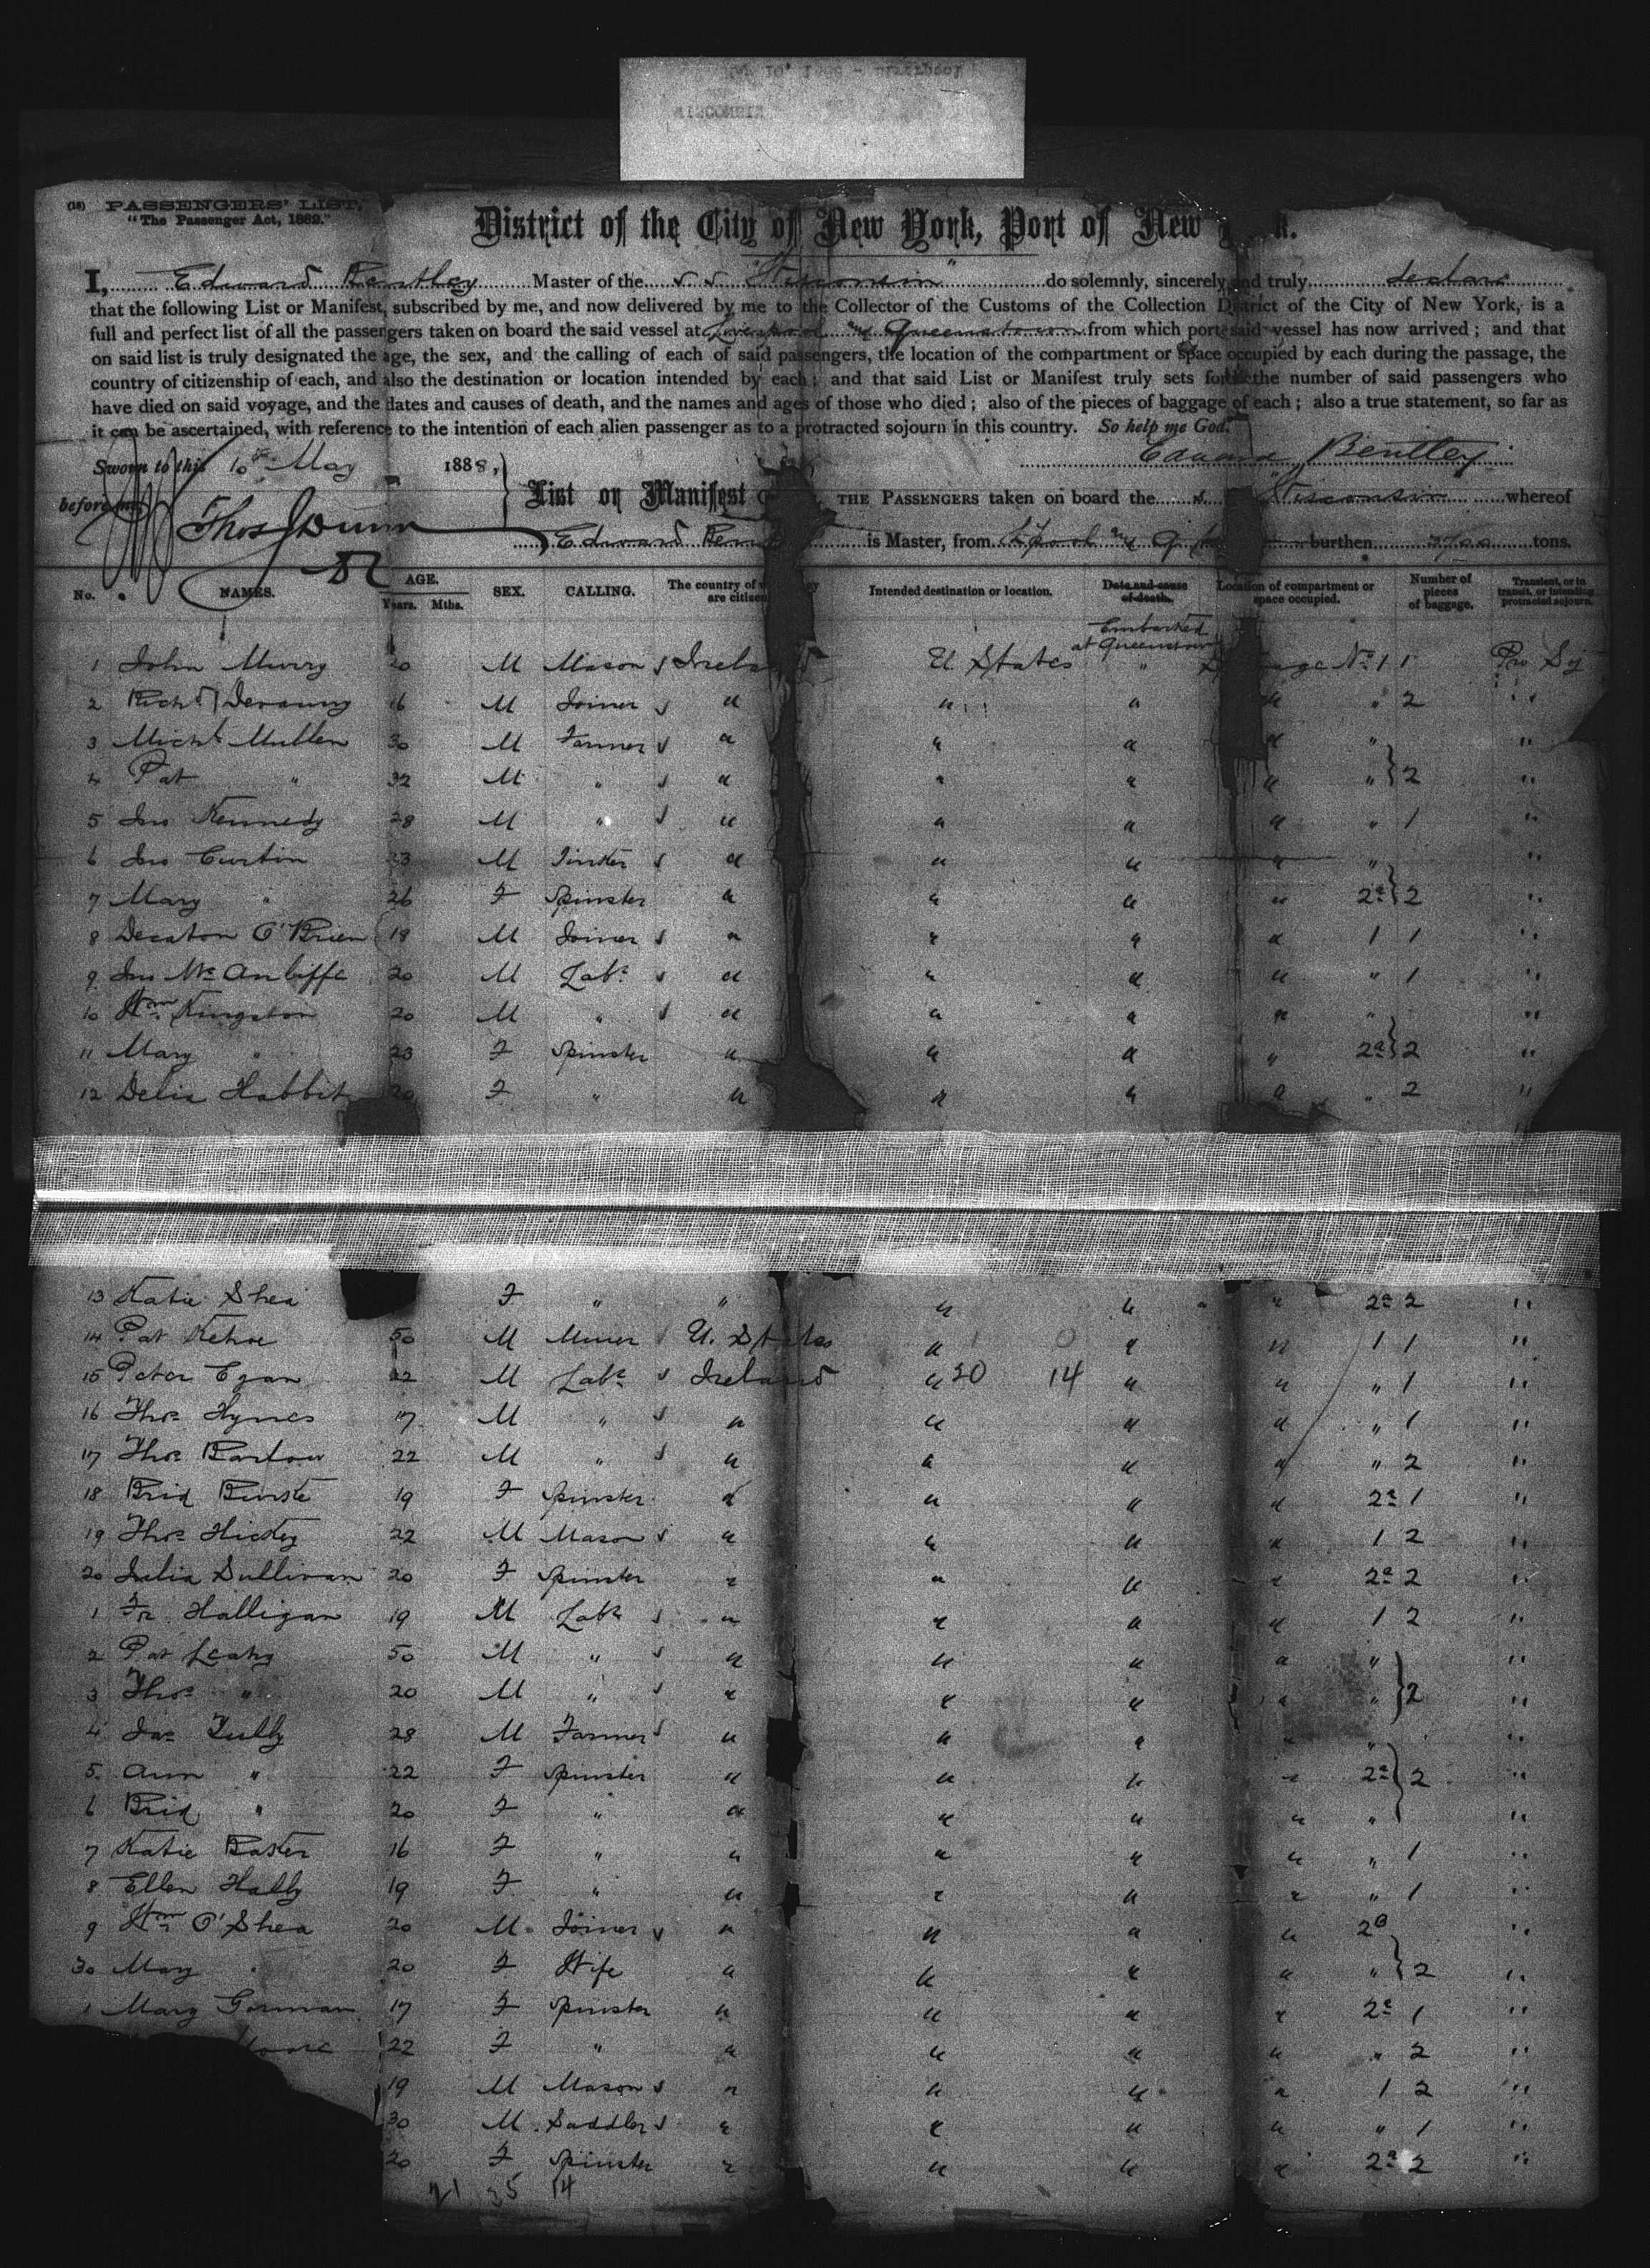 (18) PASSENGERS' LIST.
"The Passenger Act, 1882."
District of the City of New York, Port of New
I, Edward Bentley Master of the S. S. "Wisconsin" do solemnly, sincerely and truly declare
that the following List or Manifest, subscribed by me, and now delivered by me to the Collector of the Customs of the Collection District of the City of New York, is a
full and perfect list of all the passengers taken on board the said vessel at Liverpool and Queenstown from which port said vessel has now arrived; and that
on said list is truly designated the age, the sex, and the calling of each of said passengers, the location of the compartment or space occupied by each during the passage, the
country of citizenship of each, and also the destination or location intended by each; and that said List or Manifest truly sets forth the number of said passengers who
have died on said voyage, and the dates and causes of death, and the names and ages of those who died; also of the pieces of baggage of each; also a true statement, so far as
it can be ascertained, with reference to the intention of each alien passenger as to a protracted sojourn in this country. So help me God.
Sworn to this 10th May 1888,
Edward Bentley
before me
Thos J Dunn
List or Manifest THE PASSENGERS taken on board the S. Wisconsin whereof
Edward is Master, from L'pool and burthen 3700 tons.
No. NAMES. AGE. Years. Mths. SEX. CALLING. The country of are citizen Intended destination or location. Date and cause of death. Location of compartment or space occupied. Number of pieces of baggage. Transient, or in transit, or intending protracted sojourn.
Embarked at Queenstown
1 John Murry 20 M Mason s Ireland U States " No 1 1 Pro Soj
2 Richd Devanny 16 M Joiner s " " " " " 2 "
3 Michl Mullen 30 M Farmer s " " " " " "
4 Pat " 32 M " s " " " " " } 2 "
5 Jno Kennedy 28 M " s " " " " " 1 "
6 Jno Curtin 23 M s " " " " " "
7 Mary " 26 F Spinster " " " " 2a } 2 "
8 O'Brien 18 M Joiner s " " " " 1 1 "
9 Jno McAuliffe 20 M Labr s " " " " " 1 "
10 Wm Kingston 20 M " s " " " " " "
11 Mary " 23 F Spinster " " " " 2a } 2 "
12 Delia Habbit 20 F " " " " " " 2 "
13 Katie Shea F " " " " " 2a 2 "
14 Pat Kehoe 50 M Miner U. States " " " 1 1 "
15 Peter Egan 22 M Labr s Ireland " 20 14 " " " 1 "
16 Thos Hynes 17 M " s " " " " " 1 "
17 Thos Barlow 22 M " s " " " " " 2 "
18 Brid 19 F Spinster " " " " 2a 1 "
19 Thos Hickey 22 M Mason s " " " " 1 2 "
20 Julia Sullivan 20 F Spinster " " " " 2a 2 "
1 Fr. Halligan 19 M Labr s " " " " 1 2 "
2 Pat Leahy 50 M " s " " " " " "
3 Thos " 20 M " s " " " " " } 2 "
4 Jas Tully 28 M Farmer s " " " " "
5 Ann " 22 F Spinster " " " " 2a } 2 "
6 Brid " 20 F " " " " " " "
7 Katie Baker 16 F " " " " " " 1 "
8 Ellen Hally 19 F " " " " " " 1 "
9 Wm O'Shea 20 M Joiner s " " " " 2B "
30 Mary " 20 F Wife " " " " " } 2 "
1 Mary Gorman 17 F Spinster " " " " 2a 1 "
22 F " " " " " " 2 "
19 M Mason s " " " " 1 2 "
30 M Saddler s " " " " " 1 "
20 F Spinster " " " " 2a 2 "
21 35 14